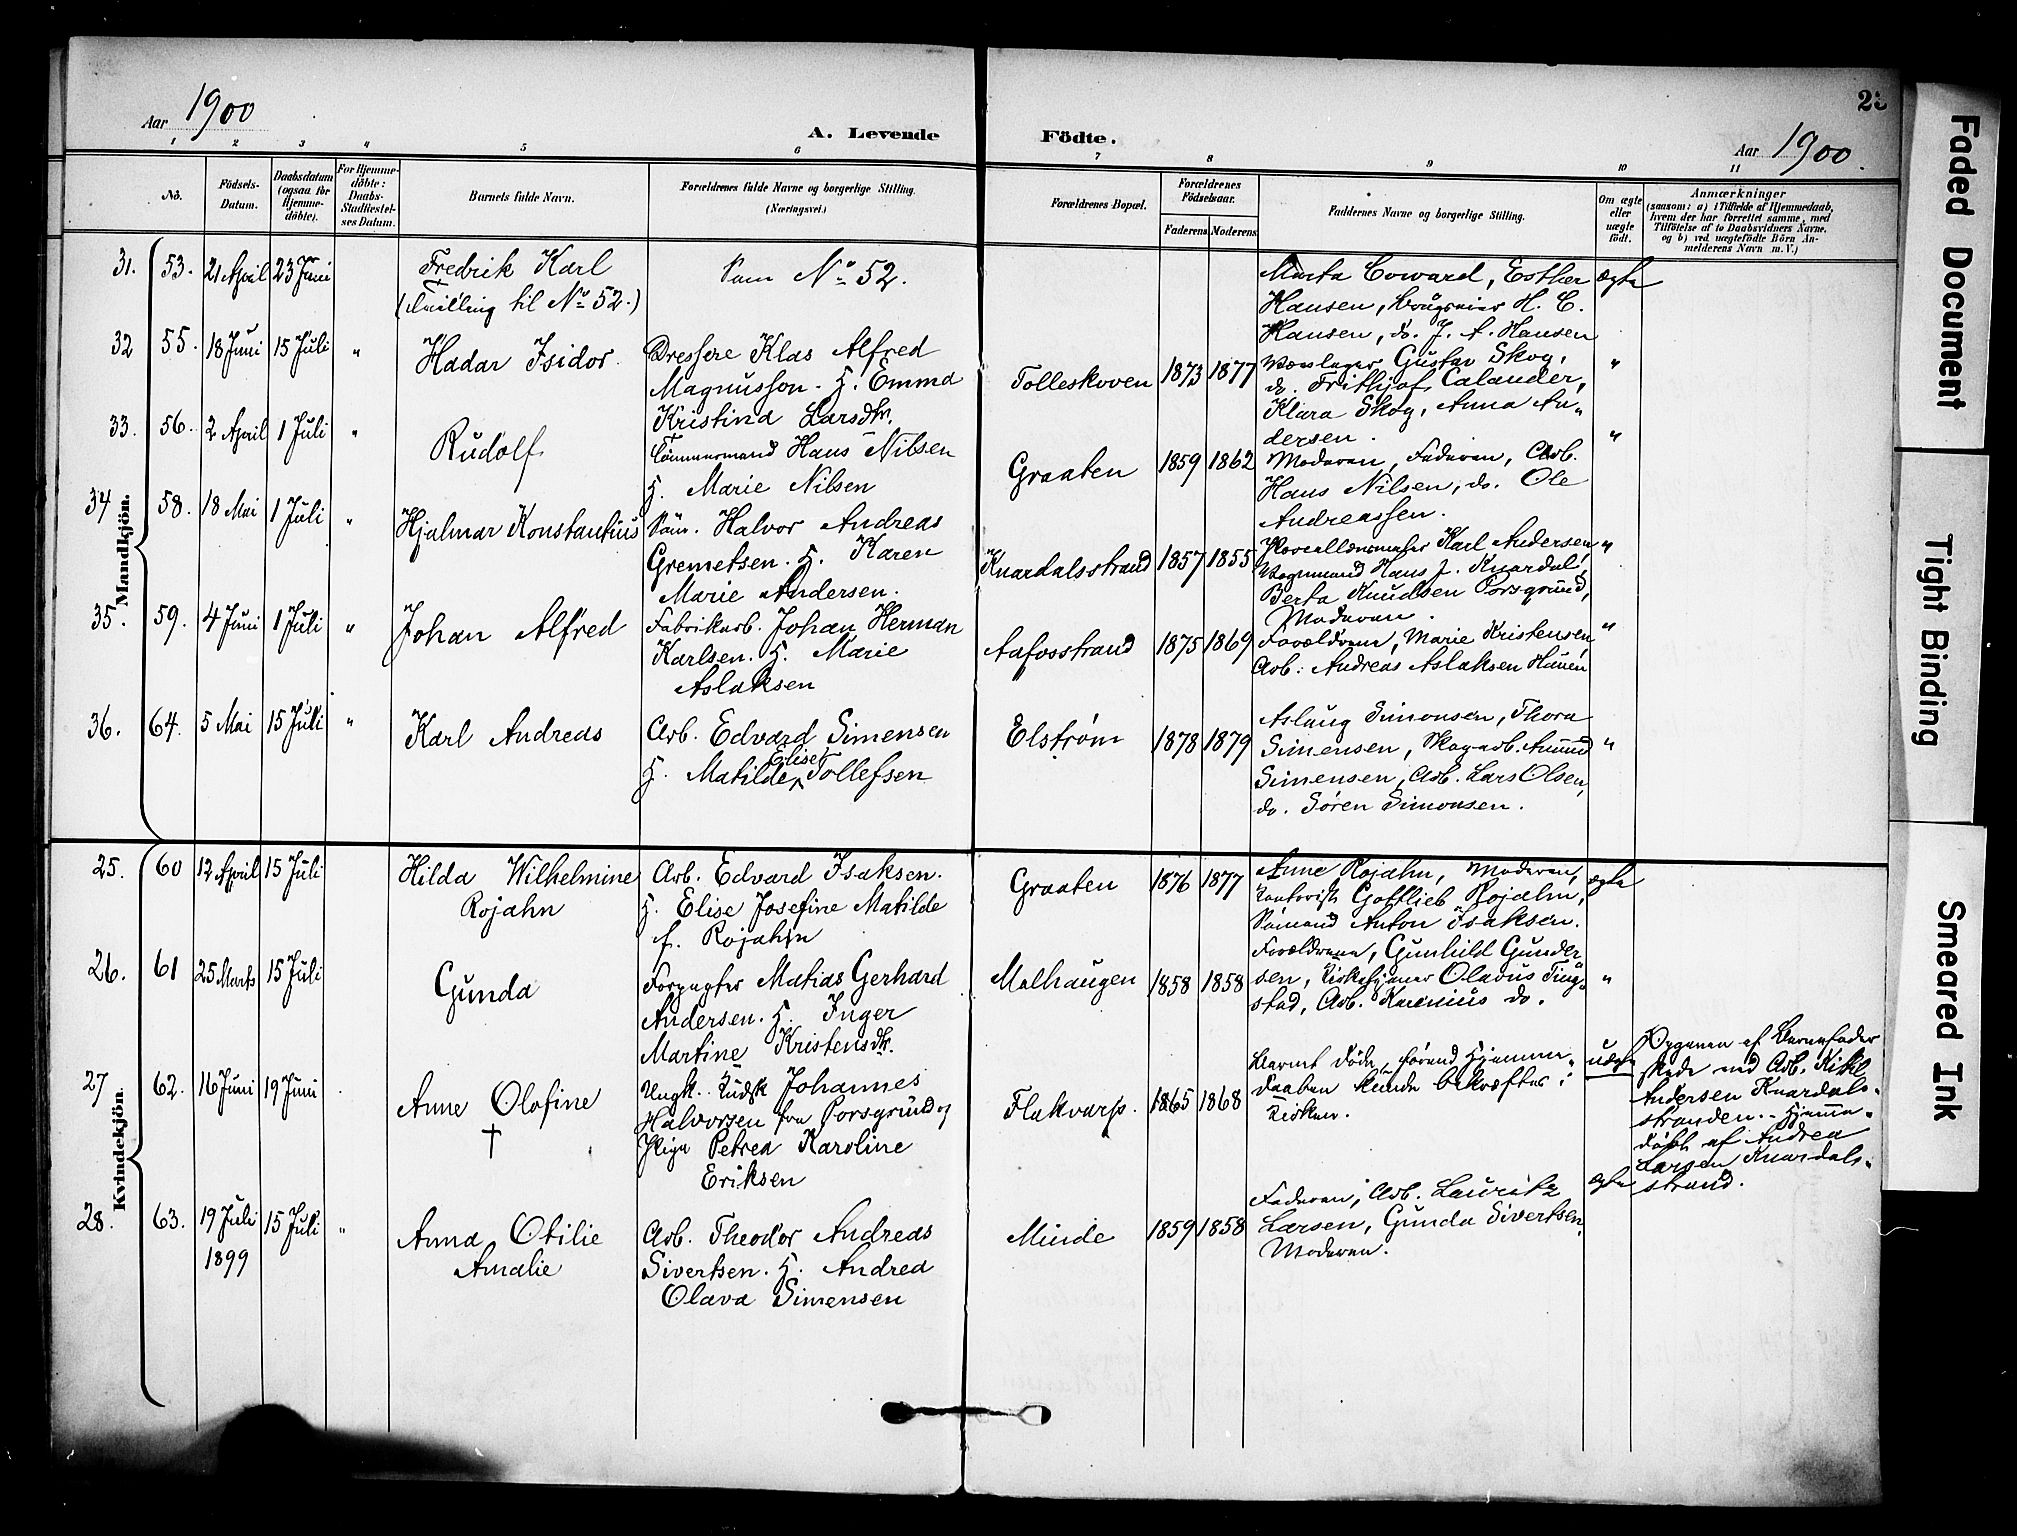 Aar 1900
A. Levende Födte.
23
Aar 1900.
1 2 3 4 5 6 7 8 9 10 11
No.
Födsels-
Datum.
Daabsdatum
(ogsaa for
Hjemme-
döbte).
For Hjemme-
döbte:
Daabs-
Stadfæstel-
ses Datum.
Barnets fulde Navn.
Forældrenes fulde Navne og borgerlige Stilling.
(Næringsvei.)
Forældrenes Bopæl.
Forældrenes
Födselsaar.
Faderens Moderens
Faddernes Navne og borgerlige Stilling.
Om ægte
eller
uægte
født.
Anmærkninger
(saasom: a) i Tilfælde af Hjemmedaab,
hvem der har forrettet samme, med
Tilföielse af to Daabsvidners Navne.
og b) ved uægtefödte Börn An-
melderens Navn m. V.)
Mandkjön.
31. 53. 21 April 23 Juni
Fredrik Karl
(Tvilling til No 52.)
Som No 52.
Marta Coward, Esther
Hansen, Brugseier H. C.
Hansen, do. J. A. Hansen
ægte
32 55. 18 Juni 15 Juli "
Hadar Isidor.
Dressere Klas Alfred
Magnusson. H. Emma
Kristina Larsdtr.
Tolleskoven 1873 1877
Gustav Skog,
do. Frithjof Calander,
Klara Skog, Anna An-
dersen.
"
33. 56. 2 April 1 Juli "
Rudolf
Tömmermand Hans Nilsen
H. Marie Nilsen
Graaten 1859 1862
Moderen, Faderen, Arb.
Hans Nilsen, do. Ole
Andreassen.
"
34 58. 18 Mai 1 Juli "
Hjalmar Konstantius
Söm. Halvor Andreas
Gremetsen. H. Karen
Marie Andersen.
Knardalsstrand 1857 1855
Porcellænsmaler Karl Andersen,
Vognmand Hans J. Knardal,
Berta Knudsen Porsgrund,
Moderen.
"
35. 59. 4 Juni 1 Juli "
Johan Alfred
Fabrikarb. Johan Herman
Karlsen. H. Marie
Aslaksen
Aafosstrand 1875 1869
Forældrene, Marie Kristensen,
Arb. Andreas Aslaksen Hauen
"
36. 64. 5 Mai 15 Juli "
Karl Andreas
Arb. Edvard Simensen
H. Matilde Elise Tollefsen
Elstrøm 1878 1879
Aslaug Simonsen, Thora
Simensen, Skogarb. Amund
Simensen, Arb. Lars Olsen,
do. Sören Simonsen.
"
Kvindekjön.
25. 60 12 April 15 Juli
Hilda Wilhelmine
Rojahn
Arb. Edvard Isaksen.
H. Elise Josefine Matilde
f. Rojahn
Graaten 1876 1877
Anne Rojahn, Moderen,
Kontorist Gottlieb Rojahn,
Sömand Anton Isaksen.
ægte
26. 61 25 Marts 15 Juli
Gunda
Forpagter Matias Gerhard
Andersen. H. Inger
Martine Kristensdtr.
Mælhaugen 1858 1858
Forældrene, Gunhild Gunder-
sen, Kirketjener Olavus Ting-
stad, Arb. Karenius do.
"
27 62. 16 Juni 19 Juni
Anne Olofine
†
Ungk. Kudsk Johannes
Halvorsen fra Porsgrund og
Pige Petrea Karoline
Eriksen
Flakvarp. 1865 1868
Barnet døde, förend Hjemme-
daaben kunde bekræftes i
Kirken.
uægte
Opgaven af Barnefader
skede ved Arb. Kittil
Andersen Knardals-
stranden. - Hjemme-
döbt af Andrea
Larsen Knardals-
strand.
28. 63. 19 Juli
1899
15 Juli "
Anna Otilie
Amalie
Arb. Theodor Andreas
Sivertsen. H. Andrea
Olava Simensen
Minde 1859 1858
Faderen, Arb. Lauritz
Larsen, Gunda Sivertsen,
Moderen.
ægte
Faded Document
Tight Binding
Smeared Ink